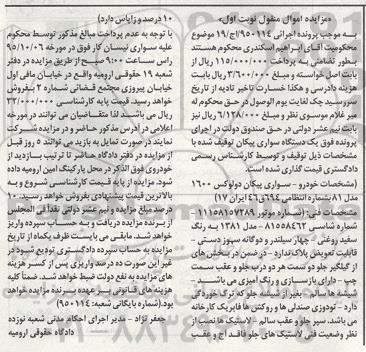 «مزایده اموال منقول نوبت اول»
به موجب پرونده اجرائی ۹۵۰۱۱۴/اج/۱۹ موضوع
محکومیت آقای ابراهیم اسکندری محکوم هستند
بطور تضامنی به پرداخت ۱۱۵/۰۰۰/۰۰۰ ریال از
بابت اصل خواسته و مبلغ ۳/۶۰۰/۰۰۰ ریال بابت
هزینه دادرسی و هکذا خسارت تاخیر تادیه از تاریخ
سررسید چک لغایت یوم الوصول در حق محکوم له
میر غلام موسوی نظر و مبلغ ۶/۱۲۸/۰۰۰ ریال نیز
بابت نیم عشر دولتی در حق صندوق دولت در اجرای
پرونده فوق یک دستگاه سواری پیکان توقیف شده با
مشخصات ذیل توقیف و توسط کارشناس رسمی
دادگستری قیمت گذاری شده است
(مشخصات خودرو - سواری پیکان دولوکس ۱۶۰۰
مدل ۸۱ بشماره انتظامی ۶۹۴ق۴۶ ایران ۱۷)
مشخصات فنی: (شماره موتور ۱۱۱۵۸۱۵۷۳۸۹
شماره شاسی ۸۱۵۵۸۴۶۲ - مدل ۱۳۸۱ به رنگ
سفید روغنی - چهار سیلندر و دوگانه سوز دستی -
قابلیت تعویض پلاک ندارد - در ضمن در بخش های
از گلگیر جلو دو سمت هر دو درب جلو و عقب سمت
چپ - دارای بازسازی و رنگ آمیزی می باشد -
شیشه ها سالم - بغیر از شیشه جلو که ترک خوردگی
دارد - تودوزی صندلی ها و روکش ها فابریک کارخانه
می باشد، سپر جلو و عقب سالم - لاستیک ها نصب از
نظر وضعیت فنی لاستیک های جلو فاقد آج و عقب
۱۰ درصد و زاپاس دارد)
با توجه به عدم پرداخت مبالغ مذکور توسط محکوم
علیه سواری نیسان کار فوق در مورخه ۹۵/۱۰/۰۶
راس ساعت ۹:۰۰ صبح از طریق مزایده در دفتر
شعبه ۱۹ حقوقی ارومیه واقع در خیابان مافی اول
خیابان پیروزی مجتمع قضائی شماره ۲ بفروش
خواهد رسید. قیمت پایه کارشناسی ۳۲/۰۰۰/۰۰۰
ریال می باشند لذا متقاضیان می توانند در مورخه
اعلامی در آدرس مذکور حاضر و در مزایده شرکت
نمایند در صورت تمایل به بازید می توانند ۵ روز قبل
از مزایده در دفتر دادگاه حاضر تا ترتیب بازدید از
خودروی فوق الذکر در محل پارکینگ امین ارومیه داده
شود. مزایده از پایه قیمت کارشناسی شروع و به
بالاترین قیمت پیشنهادی بفروش خواهد رسید. ۱۰
درصد مبلغ مزایده و نیم عشر دولتی نقدا فی المجلس
از برنده مزایده دریافت و به حساب سپرده واریز
خواهد شد. مابقی می بایست ظرف یکماه از تاریخ
مزایده به حساب سپرده دادگستری تودیع شود در
غیر این صورت ده درصد واریزی پس از کسر هزینه
های مزایده به نفع دولت ضبط خواهد شد. ضمنا کلیه
هزینه های قانونی بر عهده برنده مزایده خواهد
بود. (شماره بایگانی شعبه: ۹۵۰۱۱۴)
جعفر نژاد - مدیر اجرای احکام مدنی شعبه نوزده
دادگاه حقوقی ارومیه